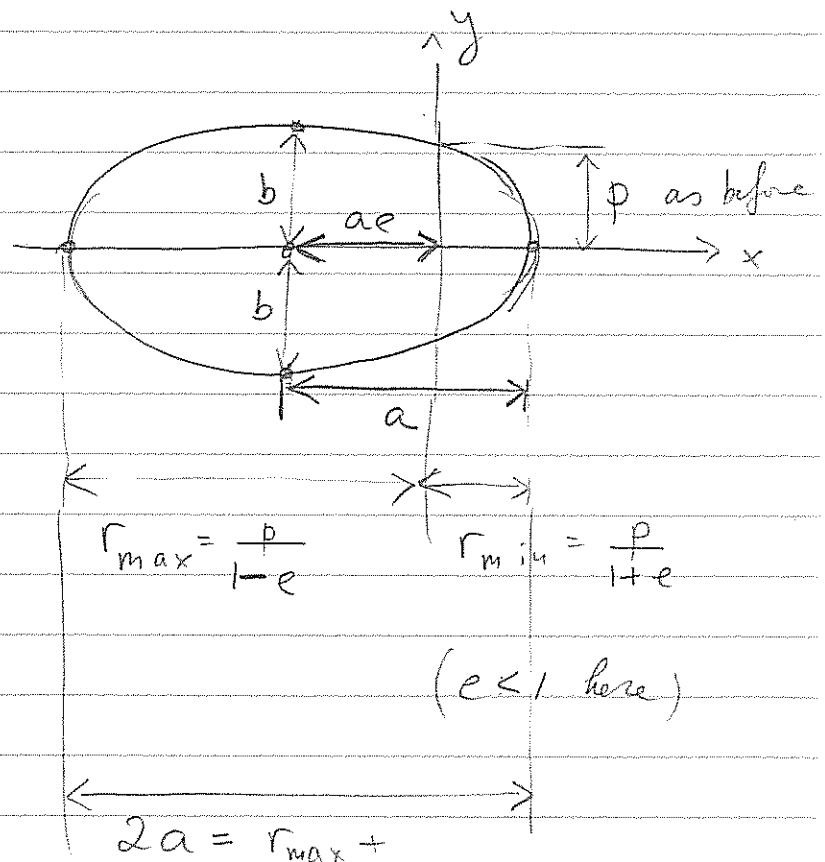 y
b
ae
p as before
x
b
a
r_max = p/(1-e) r_min = p/(1+e)
(e < 1 here)
2a = r_max +